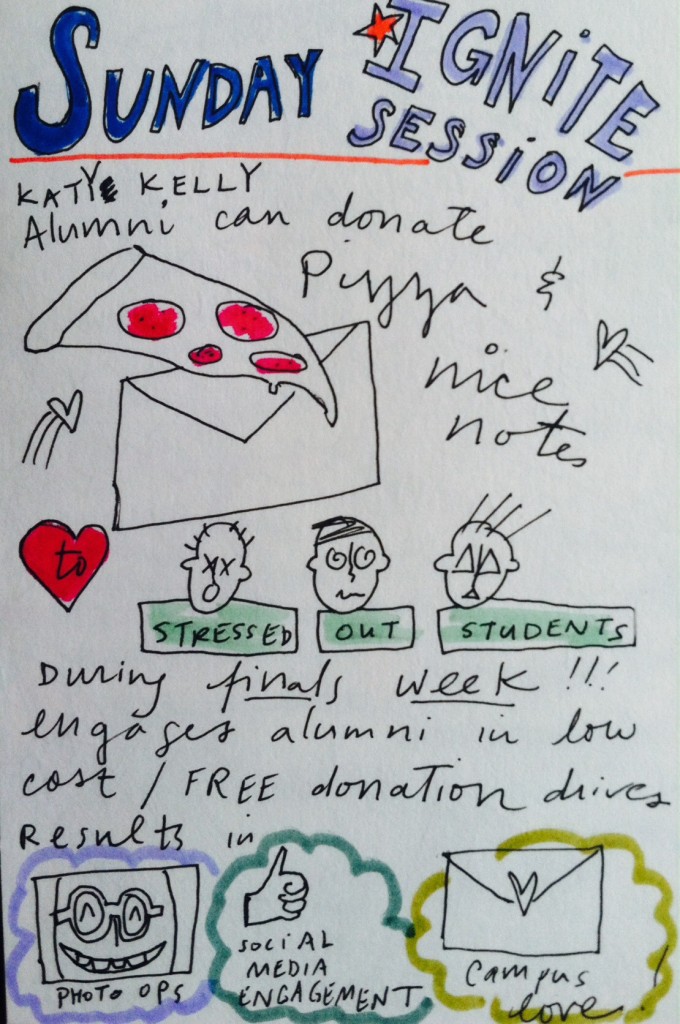 SUNDAY
IGNITE
SESSION
KATY KELLY
Alumni can donate
Pizza &
nice
notes
to
STRESSED OUT STUDENTS
During finals week !!!
engages alumni in low
cost / FREE donation drives
Results in
PHOTO OPS
SOCIAL
MEDIA
ENGAGEMENT
campus
love!